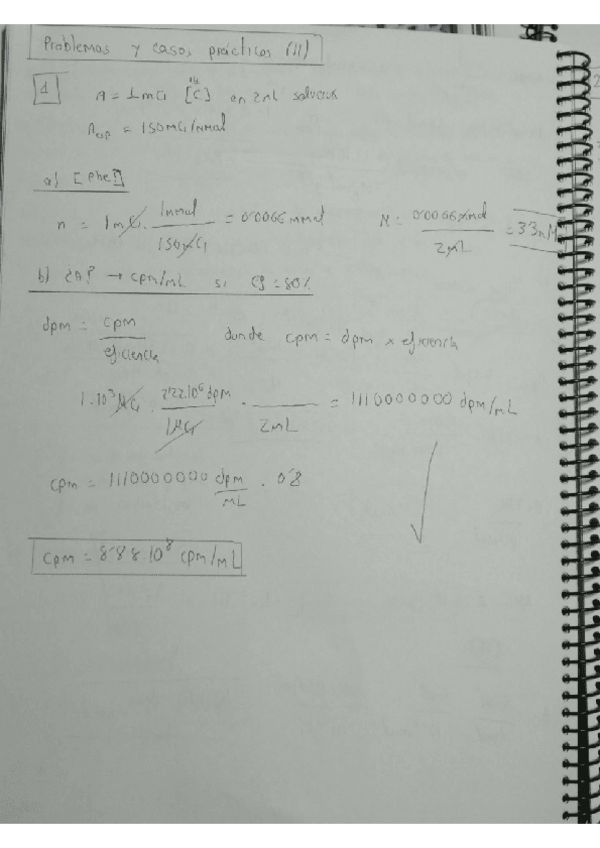 Problemas y casos prácticos (II)
1 A = 1mCi [¹⁴C] en 2mL solución
Aesp = 150mCi/mmol
a) [Phe]
n = 1mCi · 1mmol / 150mCi = 0'0066 mmol M = 0'0066 mmol / 2mL = 3'3 mM
b) ¿A? → cpm/mL si Eg = 80%
dpm = cpm / eficiencia donde cpm = dpm x eficiencia
1·10³ μCi · 2'22·10⁶ dpm / 1μCi · / 2mL = 1110000000 dpm/mL
cpm = 1110000000 dpm/mL · 0'8
cpm = 8'88·10⁸ cpm/mL